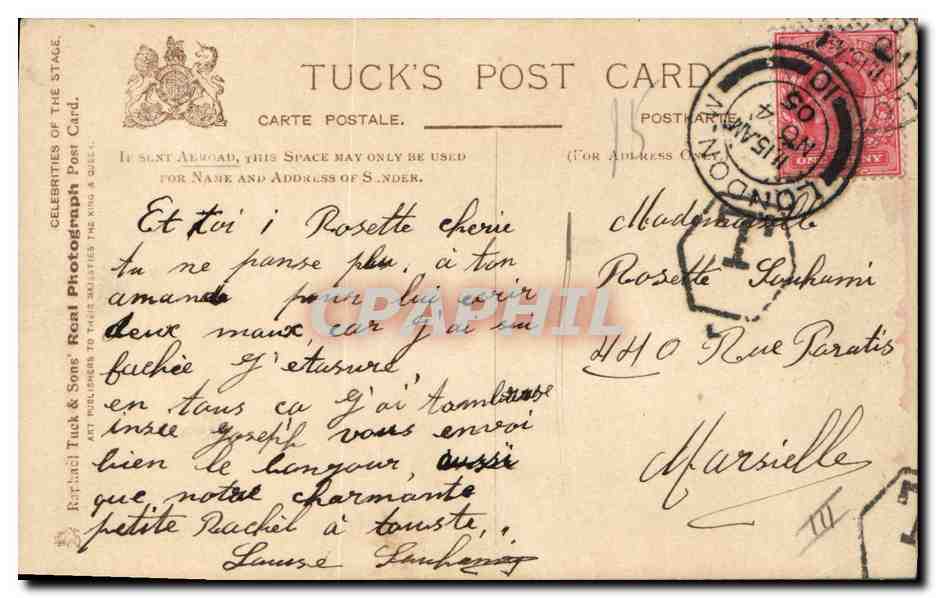 CELEBRITIES OF THE STAGE.
Raphael Tuck & Sons' Real Photograph Post Card.
ART PUBLISHERS TO THEIR MAJESTIES THE KING & QUEEN.
TUCK'S POST CARD
CARTE POSTALE.
POSTKARTE
15
IF SENT ABROAD, THIS SPACE MAY ONLY BE USED
FOR NAME AND ADDRESS OF SENDER.
(FOR ADDRESS ONLY
LONDON. W
11.15AM
NO 4
05
10
ONE PENNY
T
Et toi i Rosette cherie
tu ne panse plu, a ton
amande pour lui ecrir
deux maux car j'ai eu
fachée J'étasuré
en tous ca J'ai
insée Joseph vous envoi
bien le bongour, aussi
que notre charmante
petite Rachel à
Louise Souhami
Mademoiselle
Rosette Souhami
440 Rue Paratis
Marsielle
III
T
CPAPHIL